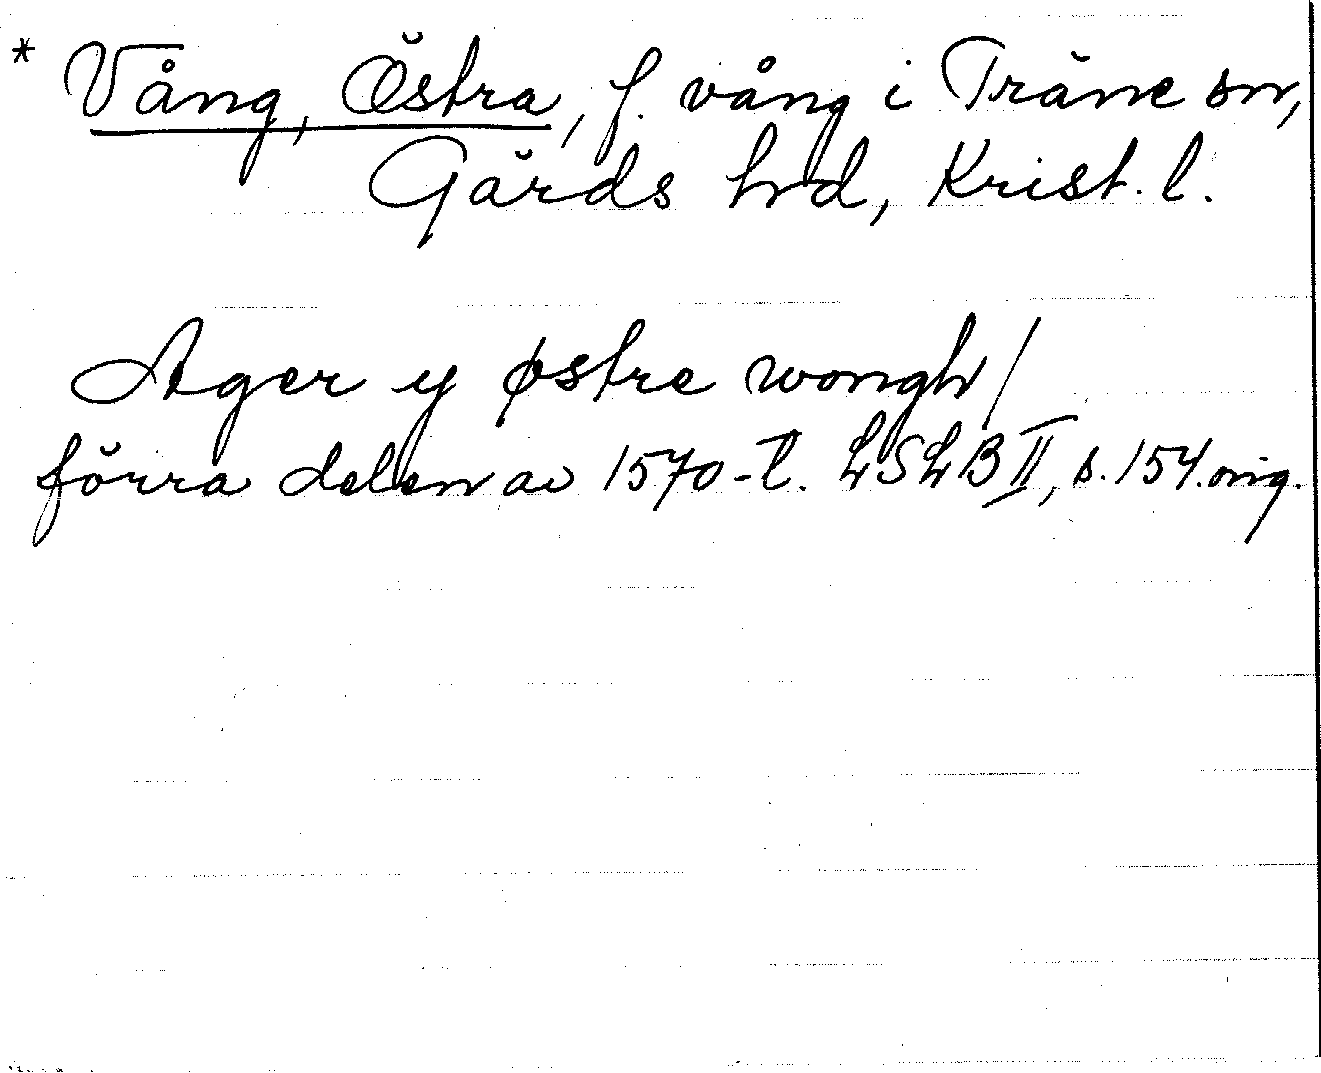 * Vång, Östra, f. vång i Träne sn,
Gärds hd, Krist. l.
Ager y østre wongh/
förra delen av 1570-t. LSLB II, s. 154. orig.